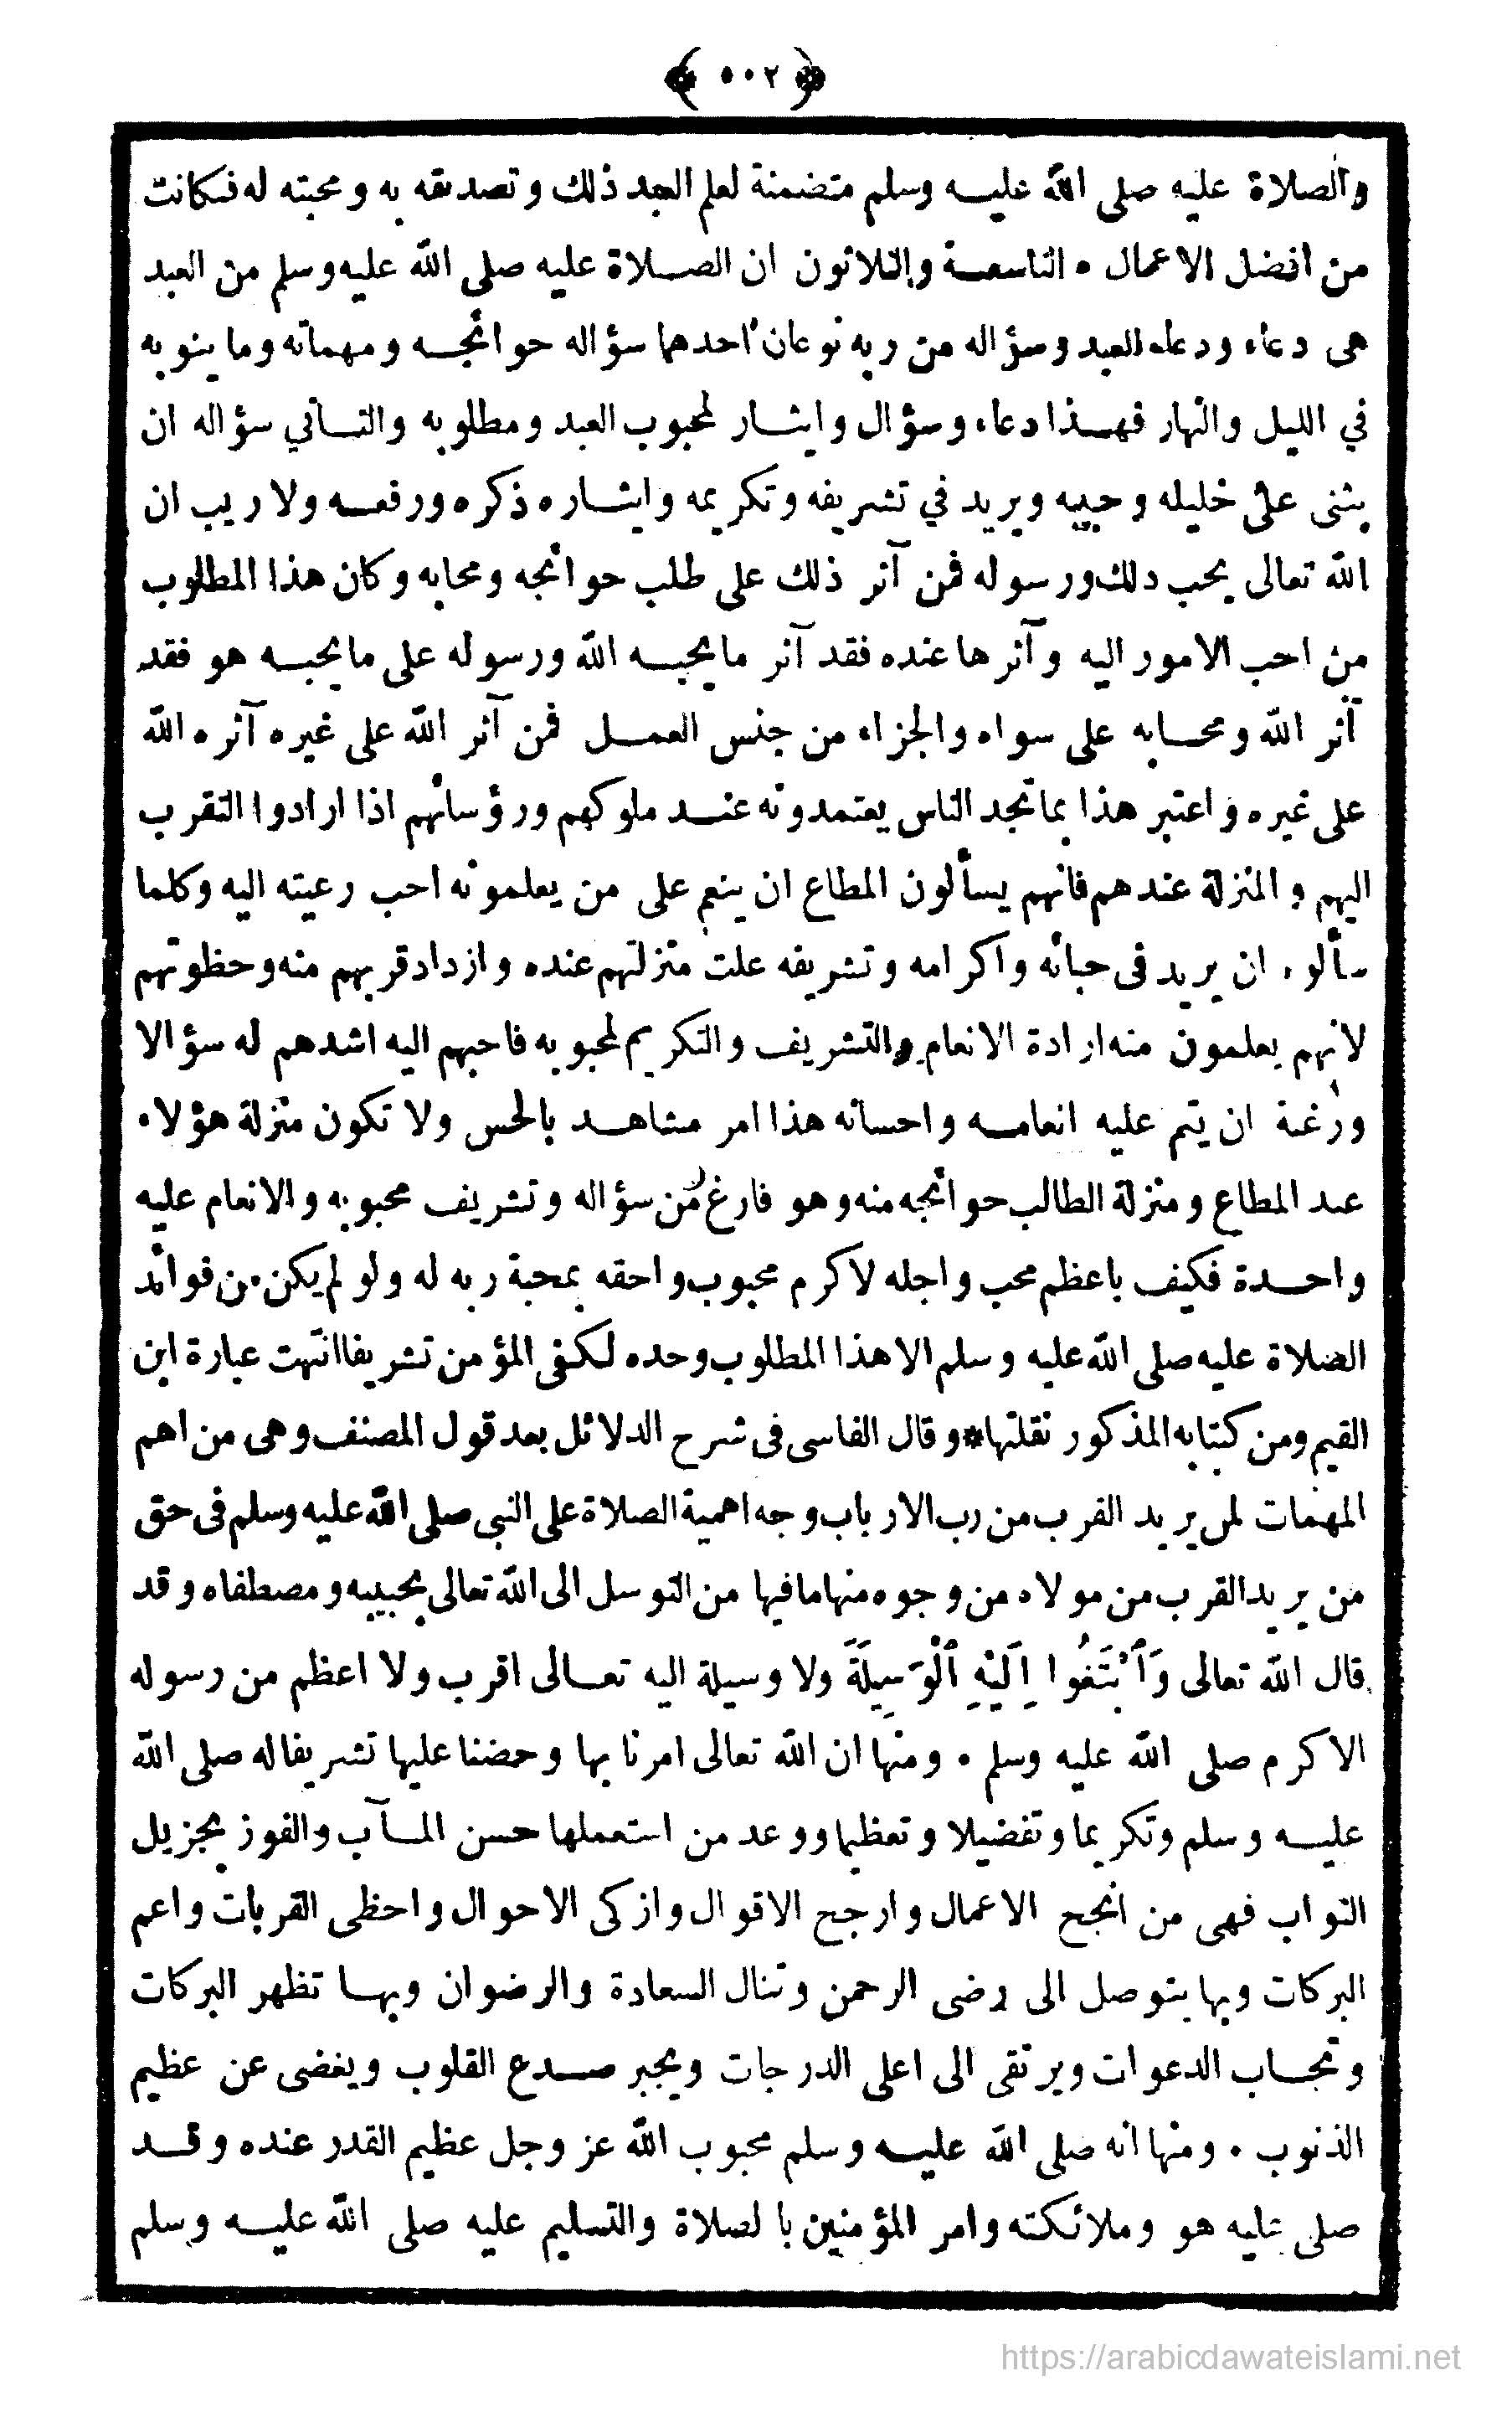 ﴿ ٥٠٢ ﴾
والصلاة عليه صلى الله عليـه وسلم متضمنة لعلم العبد ذلك وتصديقه به ومحبته له فكانت
من افضل الاعمال • التاسعـة والثلاثون ان الصـلاة عليه صلى الله عليه وسلم من العبد
هى دعاء ودعاء العبد وسؤاله من ربه نوعان احدهما سؤاله حوائجـه ومهماته وما ينوبه
في الليل والنهار فهـذا دعاء وسؤال وايثـار لمحبوب العبد ومطلوبه والثـاني سؤاله ان
يثنى على خليله وحبيبه ويريد في تشريفه وتكريمه وايثـاره ذكره ورفعـه ولا ريب ان
الله تعالى يحب ذلك ورسوله فمن آثر ذلك على طلب حوائجه ومحابه وكان هذا المطلوب
من احب الامور اليه وآثرها عنده فقد آثر ما يحبـه الله ورسوله على ما يحبـه هو فقد
آثر الله ومحـابه على سواه والجزاء من جنس العمـل فمن آثر الله على غيره آثره الله
على غيره واعتبر هذا بما تجد الناس يعتمدونه عنـد ملوكهم ورؤسائهم اذا ارادوا التقرب
اليهم والمنزلة عندهم فانهم يسألون المطاع ان ينعم على من يعلمونه احب رعيته اليه وكلما
سألوه ان يريد فى حبائه واكرامه وتشريفه علت منزلتهم عنده وازداد قربهم منه وحظوتهم
لانهم يعلمون منه ارادة الانعام والتشريف والتكريم لمحبوبه فاحبهم اليه اشدهم له سؤالا
ورغبة ان يتم عليه انعامـه واحسانه هذا امر مشاهـد بالحس ولا تكون منزلة هؤلاء
عند المطاع ومنزلة الطالب حوائجه منه وهو فارغ من سؤاله وتشريف محبوبه والانعام عليه
واحـدة فكيف باعظم محب واجله لاكرم محبوب واحقه بمحبة ربه له ولو لم يكن من فوائد
الصلاة عليه صلى الله عليه وسلم الا هذا المطلوب وحده لكفى المؤمن تشريفا انتهت عبارة ابن
القيم ومن كتابه المذكور نقلتها * وقال الفاسى فى شرح الدلائل بعد قول المصنف وهى من اهم
المهمات لمن يريد القرب من رب الارباب وجه اهمية الصلاة على النبى صلى الله عليه وسلم فى حق
من يريد القرب من مولاه من وجوه منها ما فيها من التوسل الى الله تعالى بحبيبه ومصطفاه وقد
قال الله تعالى وَٱبْتَغُوا إِلَيْهِ ٱلْوَسِيلَةَ ولا وسيلة اليه تعـالى اقرب ولا اعظم من رسوله
الاكرم صلى الله عليه وسلم • ومنها ان الله تعالى امرنا بها وحضنا عليها تشريفا له صلى الله
عليـه وسلم وتكريما وتفضيلا وتعظيما ووعد من استعملها حسن المـآب والفوز بجزيل
الثواب فهى من انجح الاعمال وارجح الاقوال وازكى الاحوال واحظى القربات واعم
البركات وبها يتوصل الى رضى الرحمن وتنال السعادة والرضوان وبهـا تظهر البركات
وتجـاب الدعوات ويرتقى الى اعلى الدرجات ويجبر صـدع القلوب ويغضى عن عظيم
الذنوب • ومنها انه صلى الله عليـه وسلم محبوب الله عز وجل عظيم القدر عنده وقـد
صلى عليه هو وملائكته وامر المؤمنين بالصلاة والتسليم عليه صلى الله عليـه وسلم
https://arabicdawateislami.net